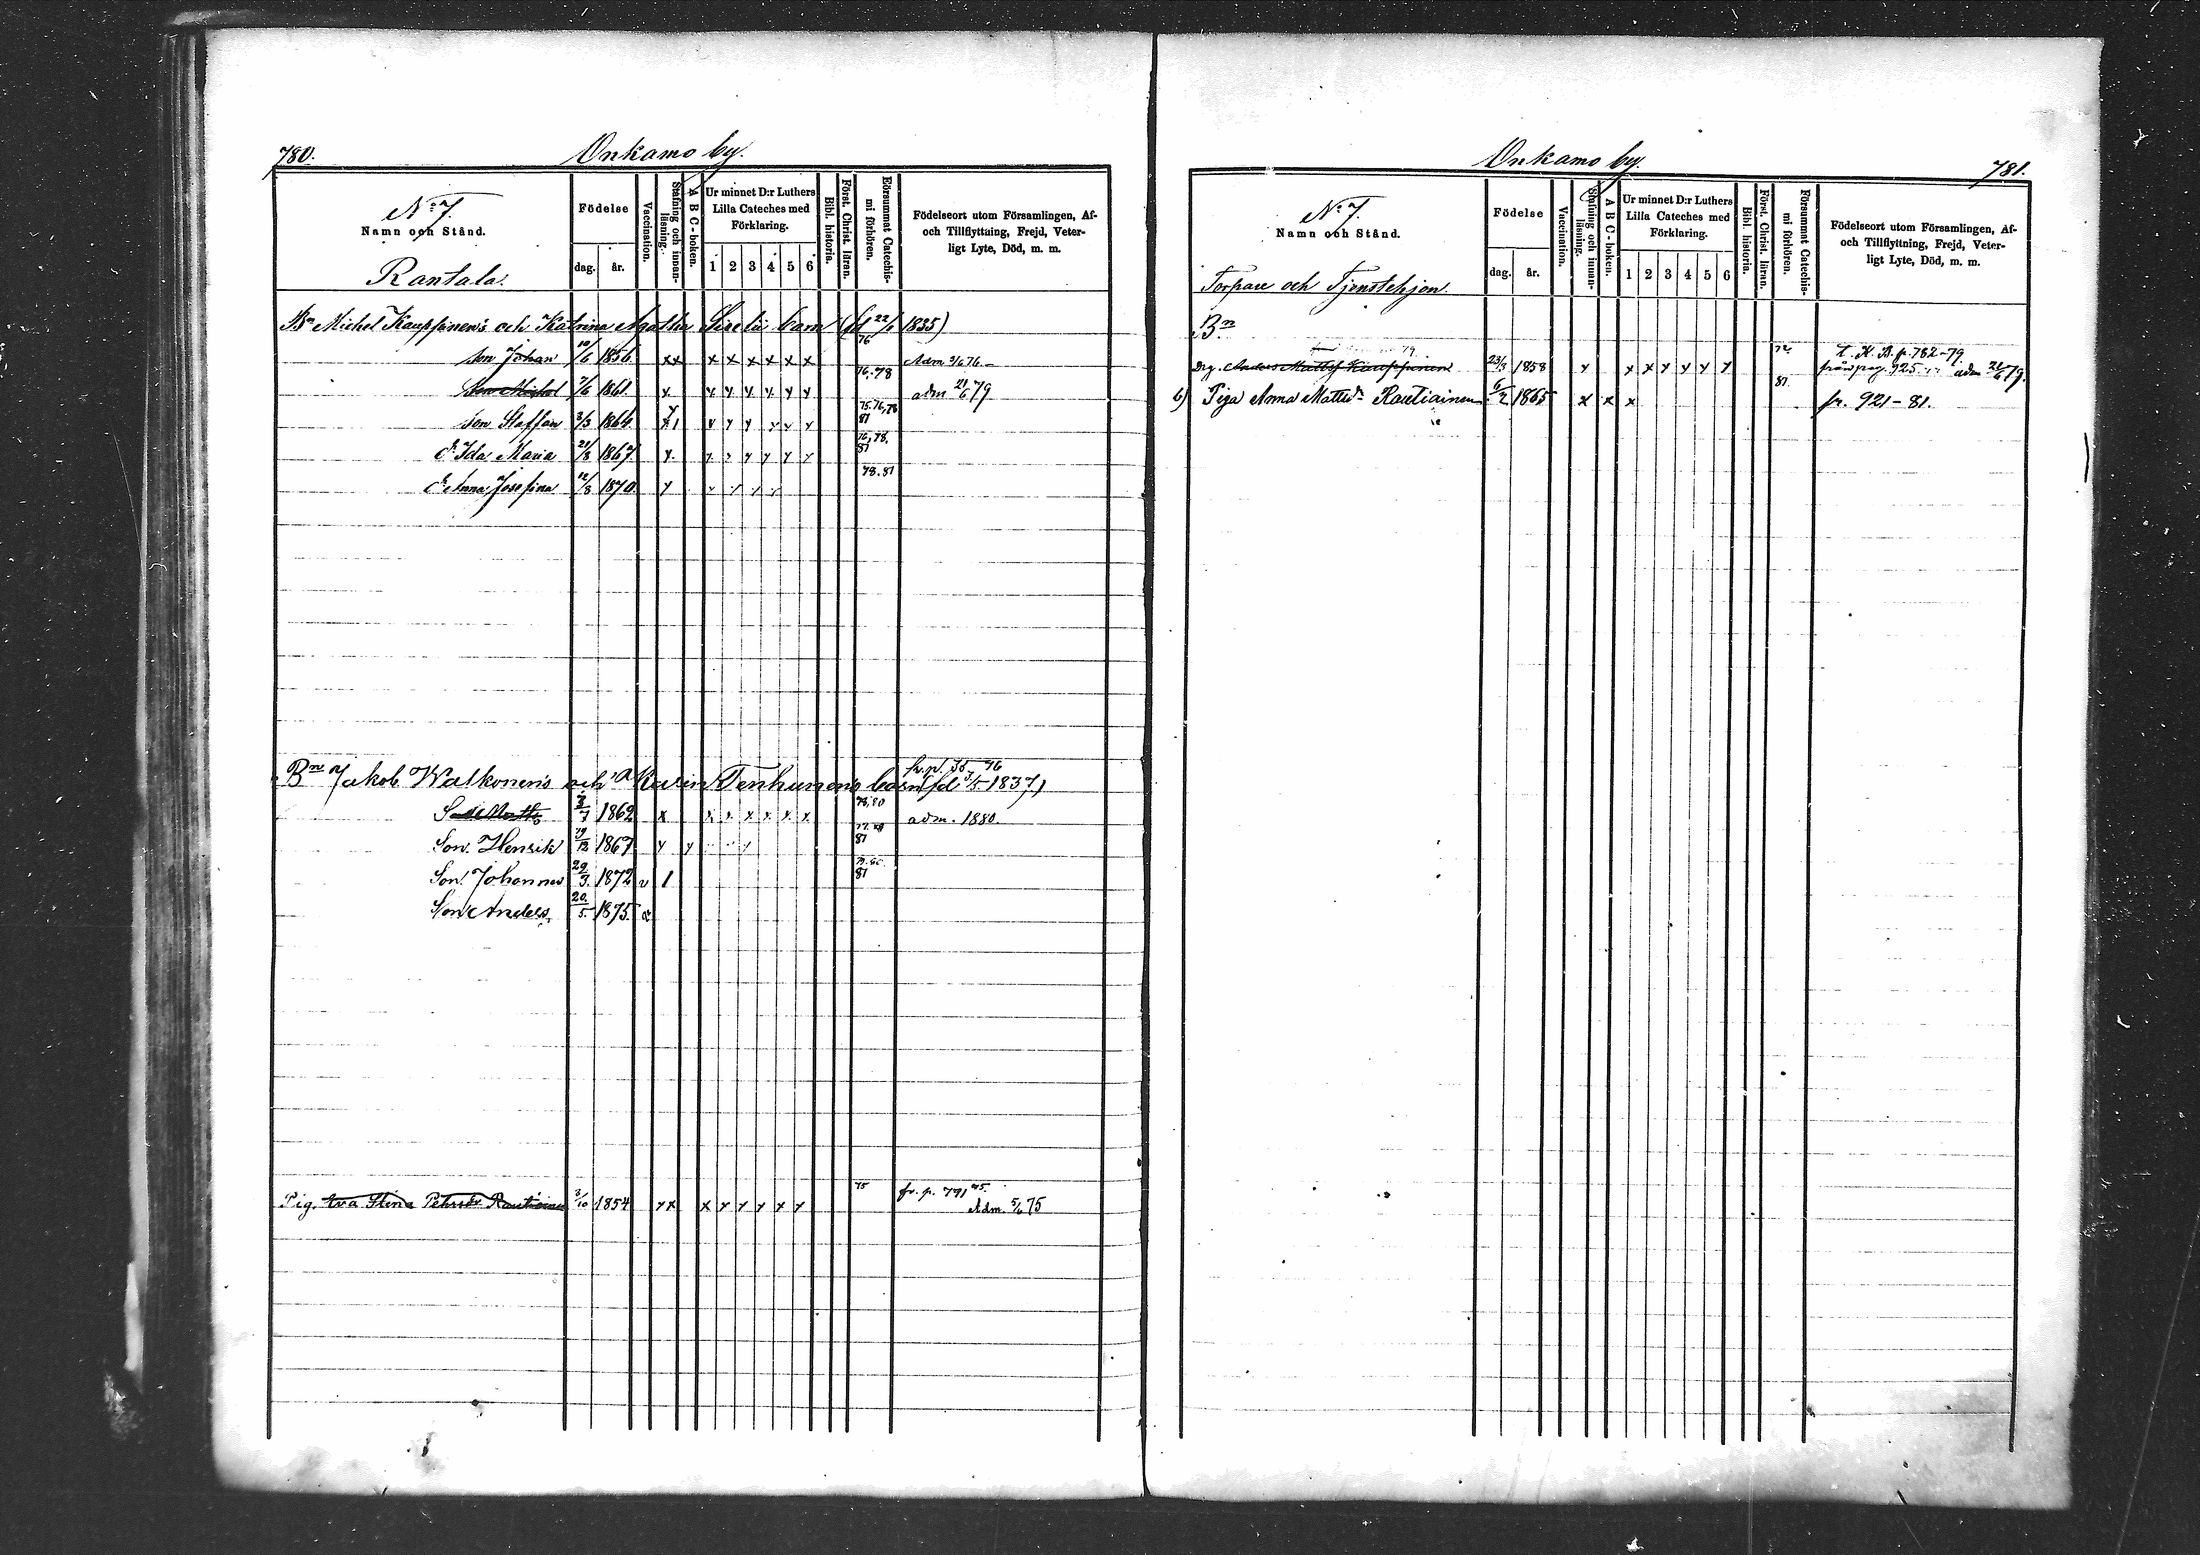 780.
Onkamo by.
No 7.
Namn och Stånd.
Rantala.
Födelse
dag. år.
Vaccination.
Stafning och innan-
läsning.
A B C-boken.
Ur minnet D:r Luthers
Lilla Cateches med
Förklaring.
1 2 3 4 5 6
Bibl. historia.
Först. Christ. läran.
Försummat Catechis-
mi förhören.
Födelseort utom Församlingen, Af-
och Tillflyttning, Frejd, Veter-
ligt Lyte, Död, m. m.
Bn Michel Kauppinen's och Katrina Agatha Sirelii barn (fd 22/ 1835)
Son Johan 10/6 1856. xx x x x x x x 76 Adm 76
Son Michel 7/6 1861. x x x x x x x 76, 78 adm 21/6 79
Son Staffan 2/3 1864. 75. 76, 78 81
dr Ida Maria 21/8 1867. 76, 78. 81
dr Anna Josefina 12/8 1870. 78. 81
fr. p. 76
Bn Jakob Walkonen's och Karin Tenhunen's barn (fd 3/5 1837)
Son Matts 3/7 1862 x x x x x x x 78, 80 adm. 1880.
Son Henrik 19/12 1867 81
Son Johannes 29/3. 1872 v 1 81
Son Anders 20./5. 1875.
Pig. Eva Stina Petersdr Rautiainen 3/10 1854 xx x x x x x x 75 fr. p. 791 75.
Adm. 5/6 75
Onkamo by.
781.
No 7.
Namn och Stånd.
Torpare och Tjenstehjon.
Födelse
dag. år.
Vaccination.
Stafning och innan-
läsning.
A B C-boken.
Ur minnet D:r Luthers
Lilla Cateches med
Förklaring.
1 2 3 4 5 6
Bibl. historia.
Först. Christ. läran.
Försummat Catechis-
mi förhören.
Födelseort utom Församlingen, Af-
och Tillflyttning, Frejd, Veter-
ligt Lyte, Död, m. m.
Bn
t. K. B. p. 782-79
drg. Anders Mattsf Kauppinen 23/3 1858 x x x x x x x från pag. 925 adm 21/6 79.
6) Piga Anna Mattsdr Rautiainen 6/2 1865 x x x 81. fr. 921-81.